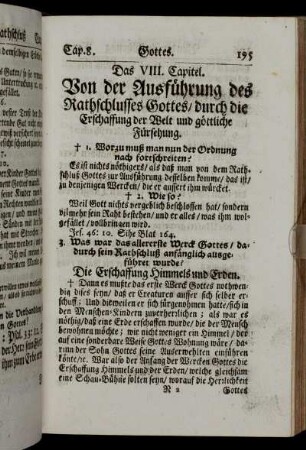 Cap. 8. Gottes. 195
Das VIII. Capitel.
Von der Ausführung des
Rathschlusses Gottes / durch die
Erschaffung der Welt und göttliche
Fürsehung.
† 1. Worzu muß man nun der Ordnung
nach fortschreiten?
Es ist nichts nöthigers / als daß man von dem Rath-
schluß Gottes zur Ausführung desselben komme / das ist /
zu denjenigen Wercken / die er äussert ihm würcket.
† 2. Wie so?
Weil Gott nichts vergeblich beschlossen hat / sondern
vielmehr sein Raht bestehen / und er alles / was ihm wol-
gefället / vollbringen wird.
Jes. 46: 10. Sihe Blat 164.
3. Was war das allererste Werck Gottes / da-
durch sein Rathschluß anfänglich ausge-
führet wurde /
Die Erschaffung Himmels und Erden.
† Dann es mußte das erste Werck Gottes nothwen-
dig dises seyn / daß er Creaturen ausser sich selbst er-
schuff: Und dieweilen er sich fürgenohmen hatte / sich in
den Menschen-Kindern zuverherrlichen; als war es
nöthig / daß eine Erde erschaffen wurde / die der Mensch
bewohnen mußte; wie nicht weniger ein Himmel / der
auf eine sonderbare Weise Gottes Wohnung wäre / dar-
inn der Sohn Gottes seine Auserwehlten einführen
könte / rc. War also der Anfang der Wercken Gottes die
Erschaffung Himmels und der Erden / welche gleichsam
eine Schau-Bühne solten seyn / worauf die Herrlichkeit
N 2 Gottes